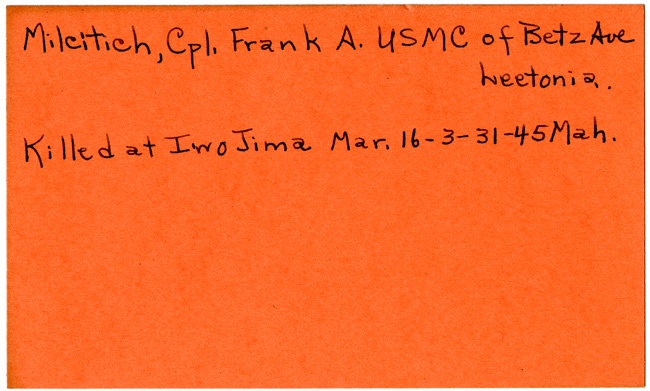 Milcitich, Cpl. Frank A. USMC of Betz Ave
Leetonia.
Killed at Iwo Jima Mar. 16-3-31-45 Mah.